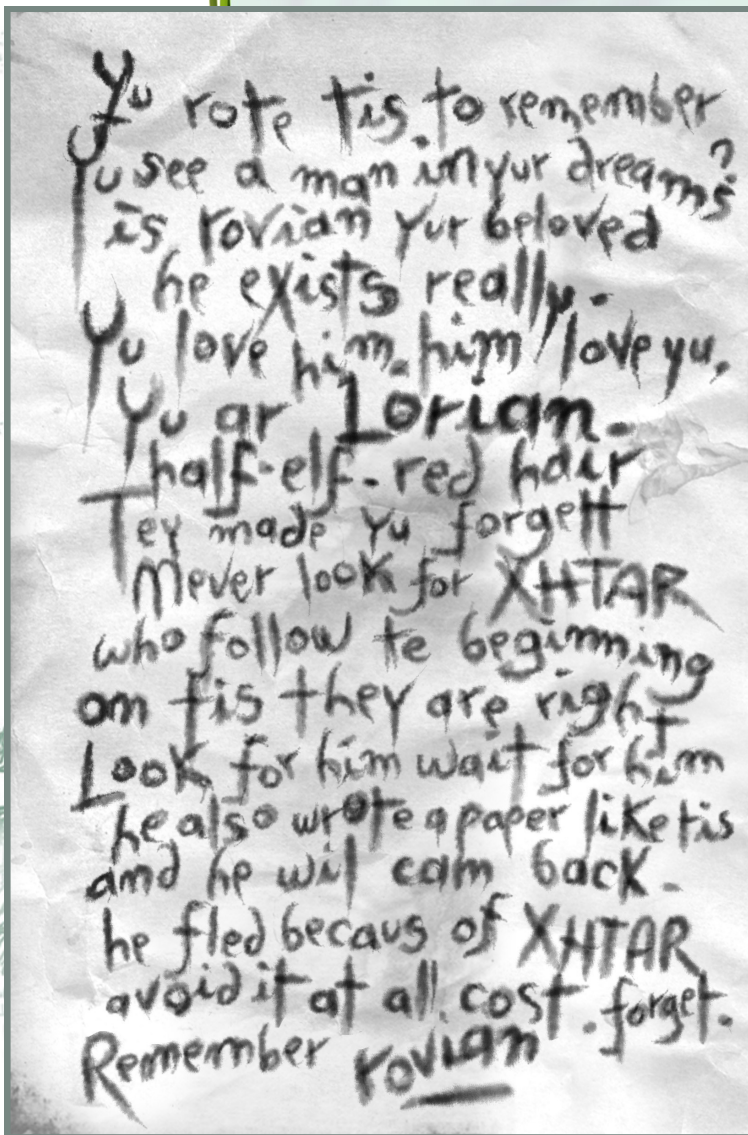 Yu rote tis to remember
Yu see a man in yur dreams?
is rovian yur beloved
he exists really.
Yu love him. him love yu.
Yu ar Lorian.
half-elf. red hair
Tey made yu forgett
Never look for XHTAR
who follow te beginning
om tis they are right
Look for him wait for him
he also wrote a paper like tis
and he wil cam back.
he fled becaus of XHTAR
avoid it at all cost. forget.
Remember rovian